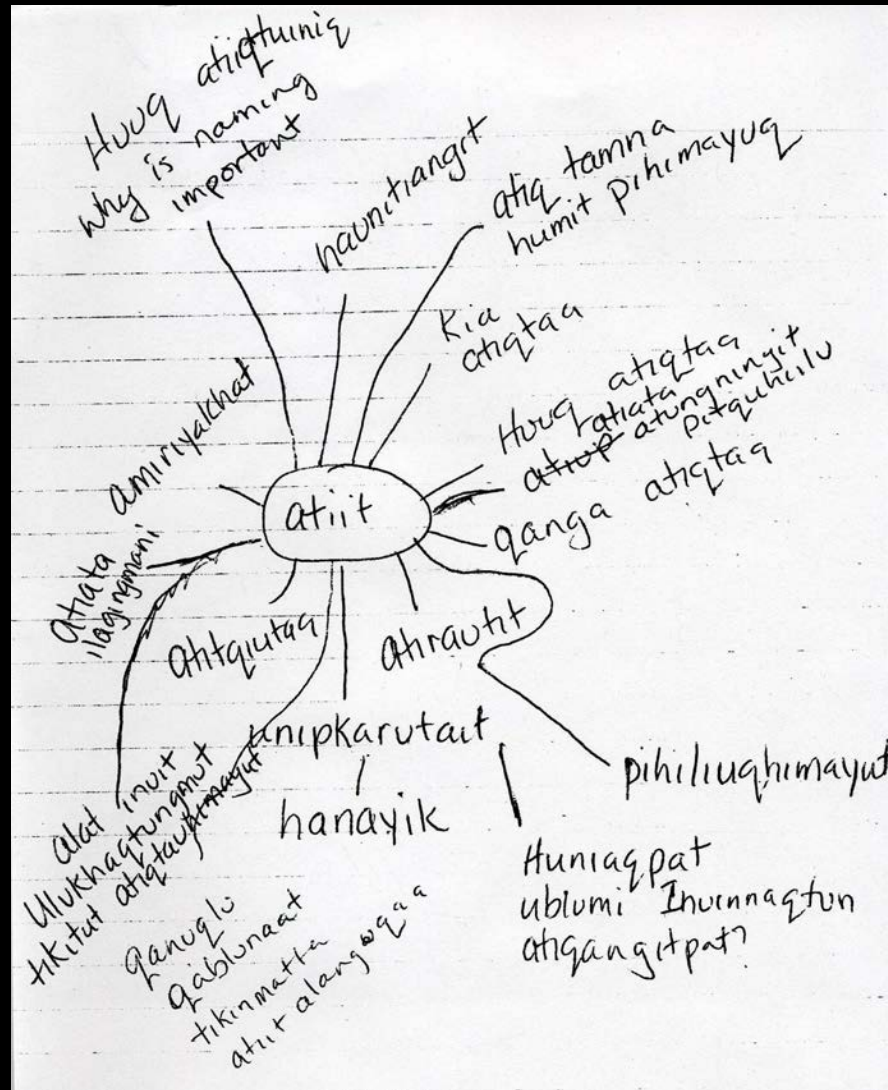 Huuq atiqtuiniq
Why is naming
important
haunitiangit
atiq tamna
humit pihimayuq
Kia
atiqtaa
Huuq atiqtaa
atiata
atiup atungningit
pitquhiilu
qanga atiqtaq
atiit
amiriyakhat
atiata
ilagingmani
atitqiutaq
atirautit
unipkarutait
hanayik
pihiliuqhimayut
alat inuit
Ulukhaqtungmut
tikitut atiqtauhimayut
qanuqlu
qablunaat
tikinmatta
atiit alanguqaa
Huniaqpat
ublumi Inuinnaqtun
atiqangitpat?